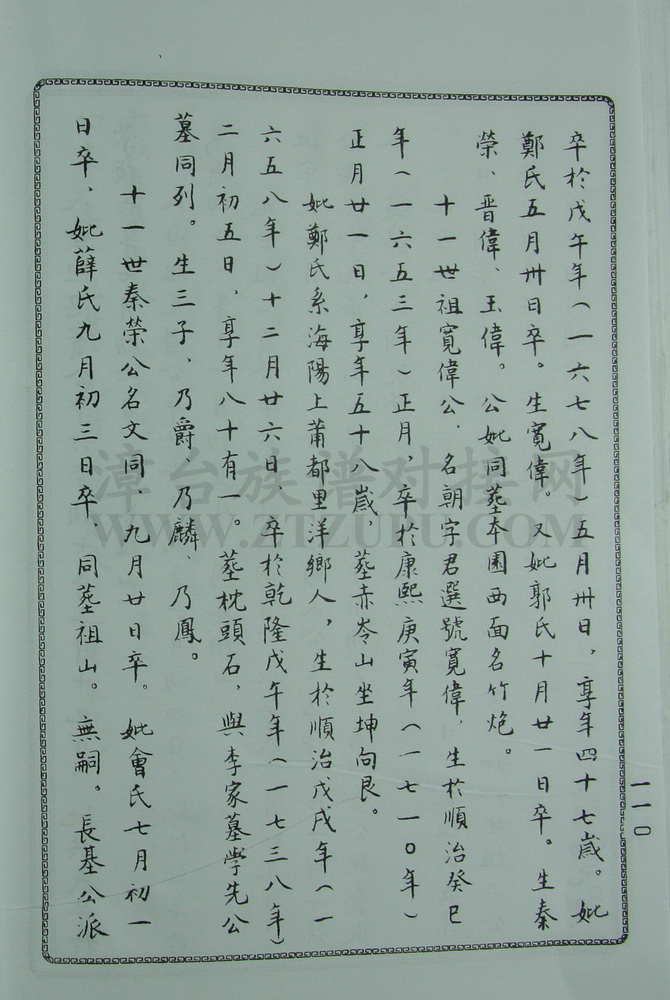 卒於戊午年(一六七八年)五月卅日,享年四十七歲。妣
鄭氏五月卅日卒。生寬偉。又妣郭氏十月廿一日卒。生秦
榮、晋偉、玉偉。公妣同塟本園西面名竹炮。
十一世祖寬偉公.名朝字君選號寬偉,生於順治癸巳
年(一六五三年)正月,卒於康熙庚寅年(一七一〇年)
正月廿一日,享年五十八歲,塟赤岺山坐坤向艮。
妣鄭氏系海陽上莆都里洋鄉人,生於順治戊戌年(一
六五八年)十二月廿六日、卒於乾隆戊午年(一七三八年)
二月初五日,享年八十有一。塟枕頭石,與李家墓学先公
墓同列。生三子、乃爵、乃麟、乃鳳。
十一世秦榮公名文同.九月廿日卒。妣會氏七月初一
日卒、妣薛氏九月初三日卒.同塟祖山。無嗣。長基公派
一一〇
漳台族谱对接网
WWW.ZTZUPU.COM